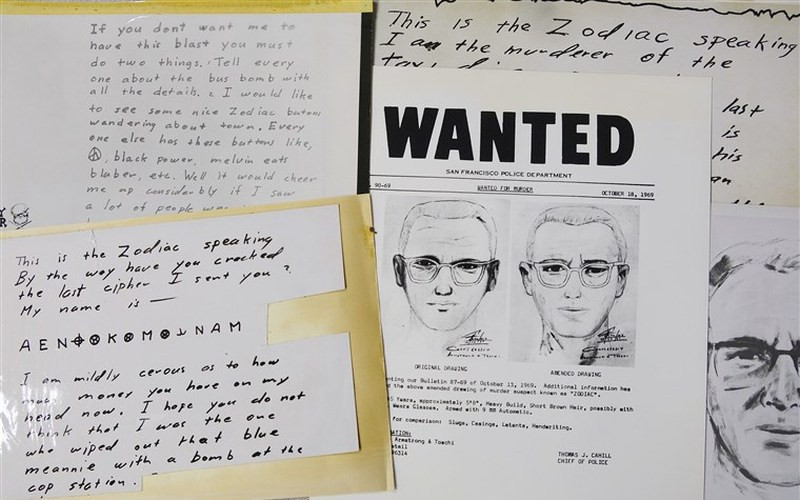 If you dont want me to
have this blast you must
do two things. Tell every
one about the bus bomb with
all the details. 2 I would like
to see some nice Zodiac butons
wandering about town. Every
one else has these buttons like,
☮, black power, melvin eats
bluber, etc. Well it would cheer
me up considerbly if I saw
a lot of people
This is the Zodiac speaking
By the way have you cracked
the last cipher I sent you?
My name is —
A E N ⊕ ⊗ K ⊗ M ⊗ N A M
I am mildly cerous as to how
much money you have on my
head now. I hope you do not
think that I was the one
who wiped out that blue
meannie with a bomb at the
cop station.
This is the Zodiac speaking
I am the murderer of the
last
is
his
an
WANTED
SAN FRANCISCO POLICE DEPARTMENT
90-69 WANTED FOR MURDER OCTOBER 18, 1969
ORIGINAL DRAWING AMENDED DRAWING
our Bulletin 87-69 of October 13, 1969. Additional information has
the above amended drawing of murder suspect known as "ZODIAC".
Years, approximately 5'8", Heavy Build, Short Brown Hair, possibly with
Wears Glasses. Armed with 9 MM Automatic.
for comparison: Slugs, Casings, Latents, Handwriting.
Armstrong & Toschi
THOMAS J. CAHILL
CHIEF OF POLICE